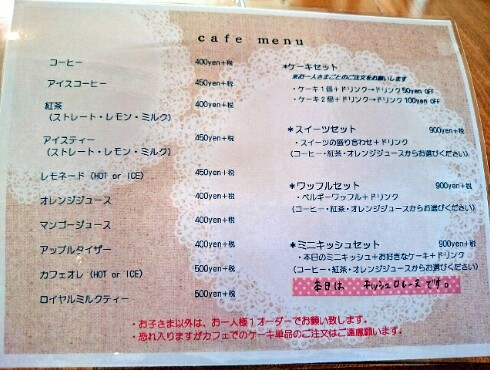 cafe menu
コーヒー 400yen+税
アイスコーヒー 450yen+税
紅茶 400yen+税
(ストレート・レモン・ミルク)
アイスティー 450yen+税
(ストレート・レモン・ミルク)
レモネード(HOT or ICE) 450yen+税
オレンジジュース 400yen+税
マンゴージュース 400yen+税
アップルタイザー 400yen+税
カフェオレ(HOT or ICE) 500yen+税
ロイヤルミルクティー 500yen+税
*ケーキセット
※お一人さまごとのご注文をお願いします
・ケーキ1個+ドリンク→ドリンク50yen OFF
・ケーキ2個+ドリンク→ドリンク100yen OFF
*スイーツセット 900yen+税
・スイーツの盛り合わせ+ドリンク
(コーヒー・紅茶・オレンジジュースからお選びください)
*ワッフルセット 900yen+税
・ベルギーワッフル+ドリンク
(コーヒー・紅茶・オレンジジュースからお選びください)
*ミニキッシュセット 900yen+税
・本日のミニキッシュ+お好きなケーキ+ドリンク
(コーヒー・紅茶・オレンジジュースからお選びください)
本日は キッシュロレーヌです。
・お子さま以外は、お一人様1オーダーでお願い致します。
・恐れ入りますがカフェでのケーキ単品のご注文はご遠慮願います。